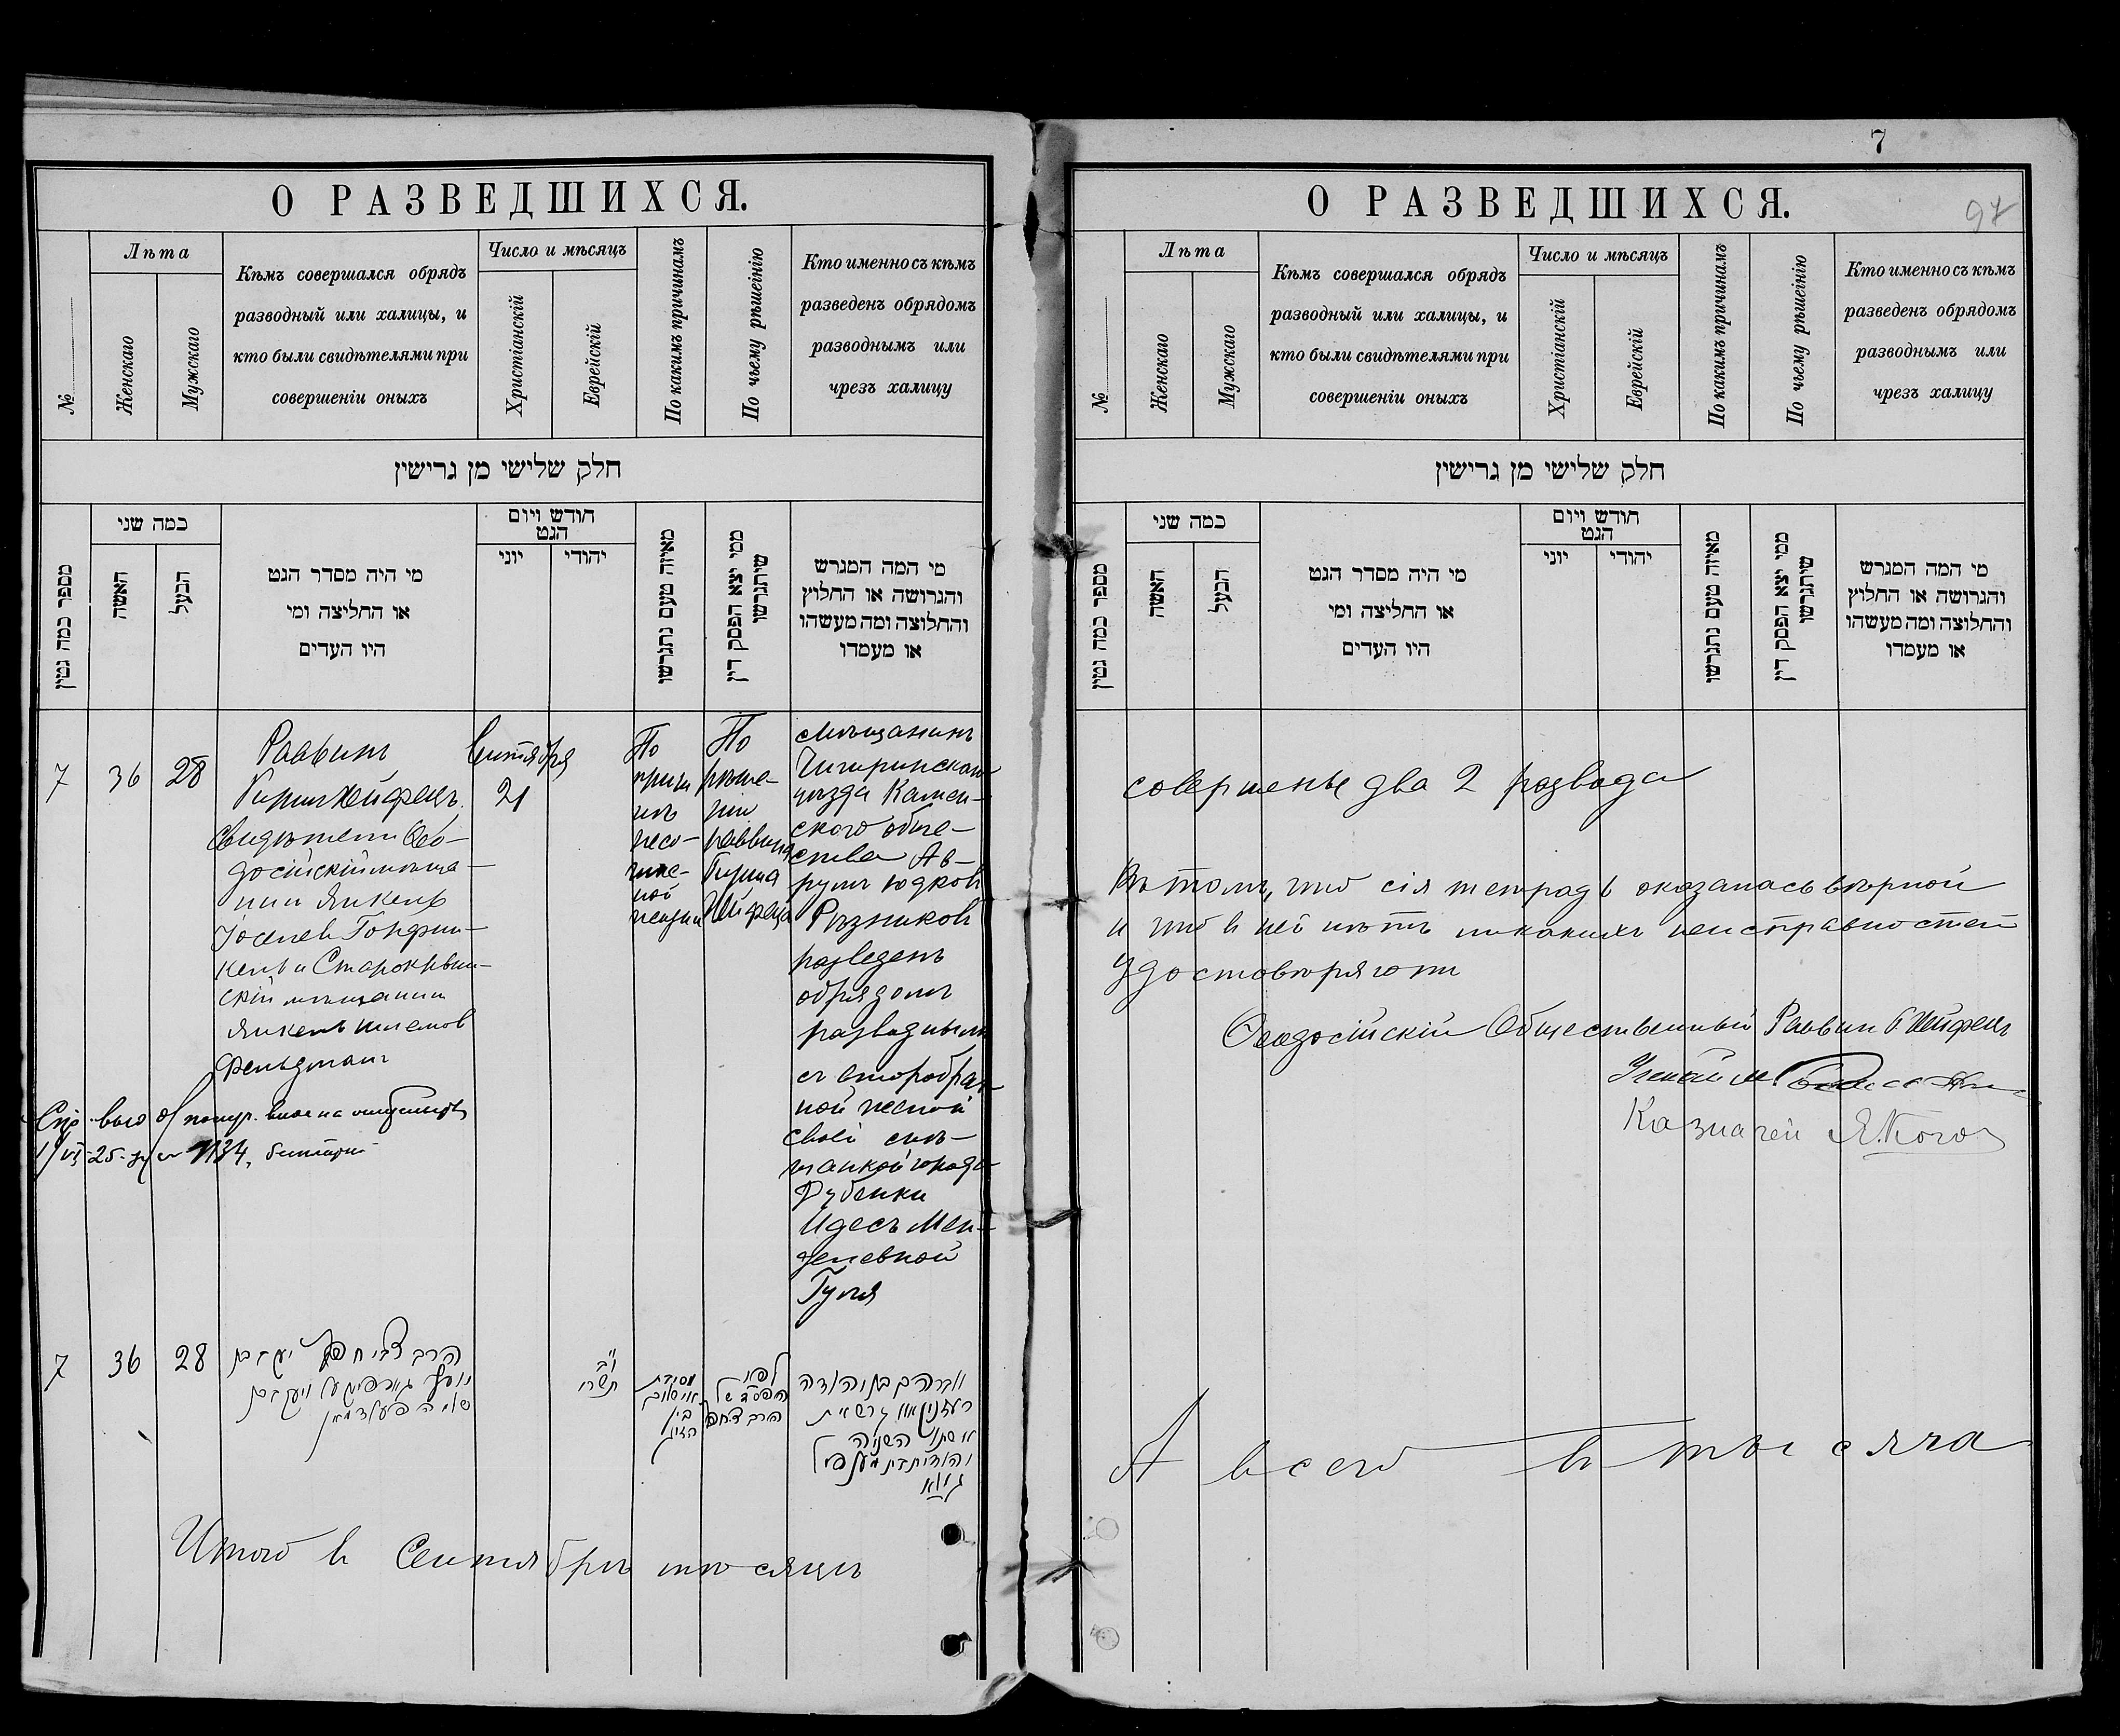 О РАЗВЕДШИХСЯ.
№
Лѣта
Женскаго
Мужскаго
Кѣмъ совершался обрядъ
разводный или халицы, и
кто были свидѣтелями при
совершеніи оныхъ
Число и мѣсяцъ
Христіанскій
Еврейскій
По какимъ причинамъ
По чьему рѣшенію
Кто именно съ кѣмъ
разведенъ обрядомъ
разводнымъ или
чрезъ халицу
חלק שלישי מן גרישין
מספר כמה גטין
כמה שני
האשה
הבעל
מי היה מסדר הגט
או החליצה ומי
היו העדים
חודש ויום
הגט
יוני
יהודי
מאיזה טעם נתגרשו
ממי יצא הפסק דין
שיתגרשו
מי המה המגרש
והגרושה או החלוץ
והחלוצה ומה מעשהו
או מעמדו
7
36
28
Раввинъ
Гиршъ Хейфецъ.
Свидѣтели Ѳео-
досійскій мѣща-
нин Янкель
Іоселев
и Старокрым-
скій мѣщанин
Янкель Шлемов
Фельдман
Сентября
21
По
причи
нѣ
несо-
гласной
жизни
По
рѣше-
нію
раввина
Гирша
Хейфеца
Мѣщанинъ
Чигиринскаго
уѣзда Камен-
скаго обще-
ства Ав-
румъ Юдков
Рѣзников
разведенъ
обрядомъ
разводнымъ
съ второбрач-
ной женой
своей мѣ-
щанкой города
Дубенки
Идесъ Мен-
делевной
7
36
28
הרב צבי חפץ יעקב
שלמה פעלדמאן
י"ב
תשרי
מסבת
אי שלום
בין
הזוג
לפי
הפס"ד של
הרב צ חפץ
אברהם בן יהודה
רעזניקאוו גרש את
אשתו השניה
Итого в Сентябрѣ мѣсяцѣ
7
97
О РАЗВЕДШИХСЯ.
№
Лѣта
Женскаго
Мужскаго
Кѣмъ совершался обрядъ
разводный или халицы, и
кто были свидѣтелями при
совершеніи оныхъ
Число и мѣсяцъ
Христіанскій
Еврейскій
По какимъ причинамъ
По чьему рѣшенію
Кто именно съ кѣмъ
разведенъ обрядомъ
разводнымъ или
чрезъ халицу
חלק שלישי מן גרישין
מספר כמה גטין
כמה שני
האשה
הבעל
מי היה מסדר הגט
או החליצה ומי
היו העדים
חודש ויום
הגט
יוני
יהודי
מאיזה טעם נתגרשו
ממי יצא הפסק דין
שיתגרשו
מי המה המגרש
והגרושה או החלוץ
והחלוצה ומה מעשהו
או מעמדו
совершены два 2 развода
Въ томъ, что сія тетрадь оказалась вѣрной
и что в ней нѣтъ никакихъ неисправностей
удостовѣряютъ
Ѳеодосійскій Общественный Раввин Г. Хейфецъ
Ученый
Казначей Я. Коган
А всего в тысяча